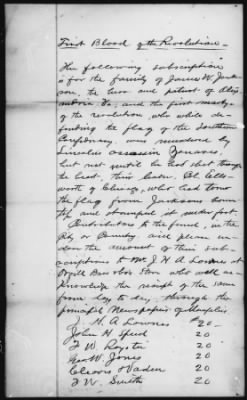 First Blood of the Revolution –
The following subscription
is for the family of James W. Jack-
son, the hero and patriot of Alex-
andria Va; and the first martyr
of the revolution, who while de-
fending the flag of the Southern
Confederacy, was murdered by
Lincoln's assassin Zouaves,
but not until he had shot through
the heart, their leader, Col. Ells-
worth of Chicago, who had torn
the flag from Jackson's house
top and stamped it under foot.
Contributors to the fund, in the
City or County will please han-
don the amount of their sub-
scriptions to Mr. J. H. A. Lownes at
Orgill Bros & Co's Store who will ac-
knowledge the receipt of the same
from day to day, through the
principal Newspapers of Memphis
H. A. Lownes $20.
John H. Speed 20
F W Royster 20
Geo W. Jones 20
Cleaves & Vaden 20
F. W. Smith 20